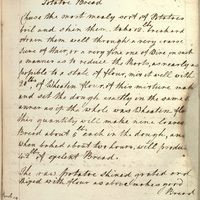 Potatoe Bread
Chuse the most mealy sort of Potatoes
boil and skin them. take 12th. break and
strain them well through a very coarse
Sieve of Hair, or a very fine one of Wire in such
a manner as to reduce the Roots, as nearly as
possible to a state of flour, mix it well with
20th of Wheaten flour, of this mixture make
and set the dough exactly in the same
manner as if the whole was Wheaten flour
This quantity will make nine loaves
Bread about 5th each in the dough, and
when baked about two hours, will produce
42th of excelent Bread.
The raw Potatoe skined grated and
mixed with flour as above makes good
Bread